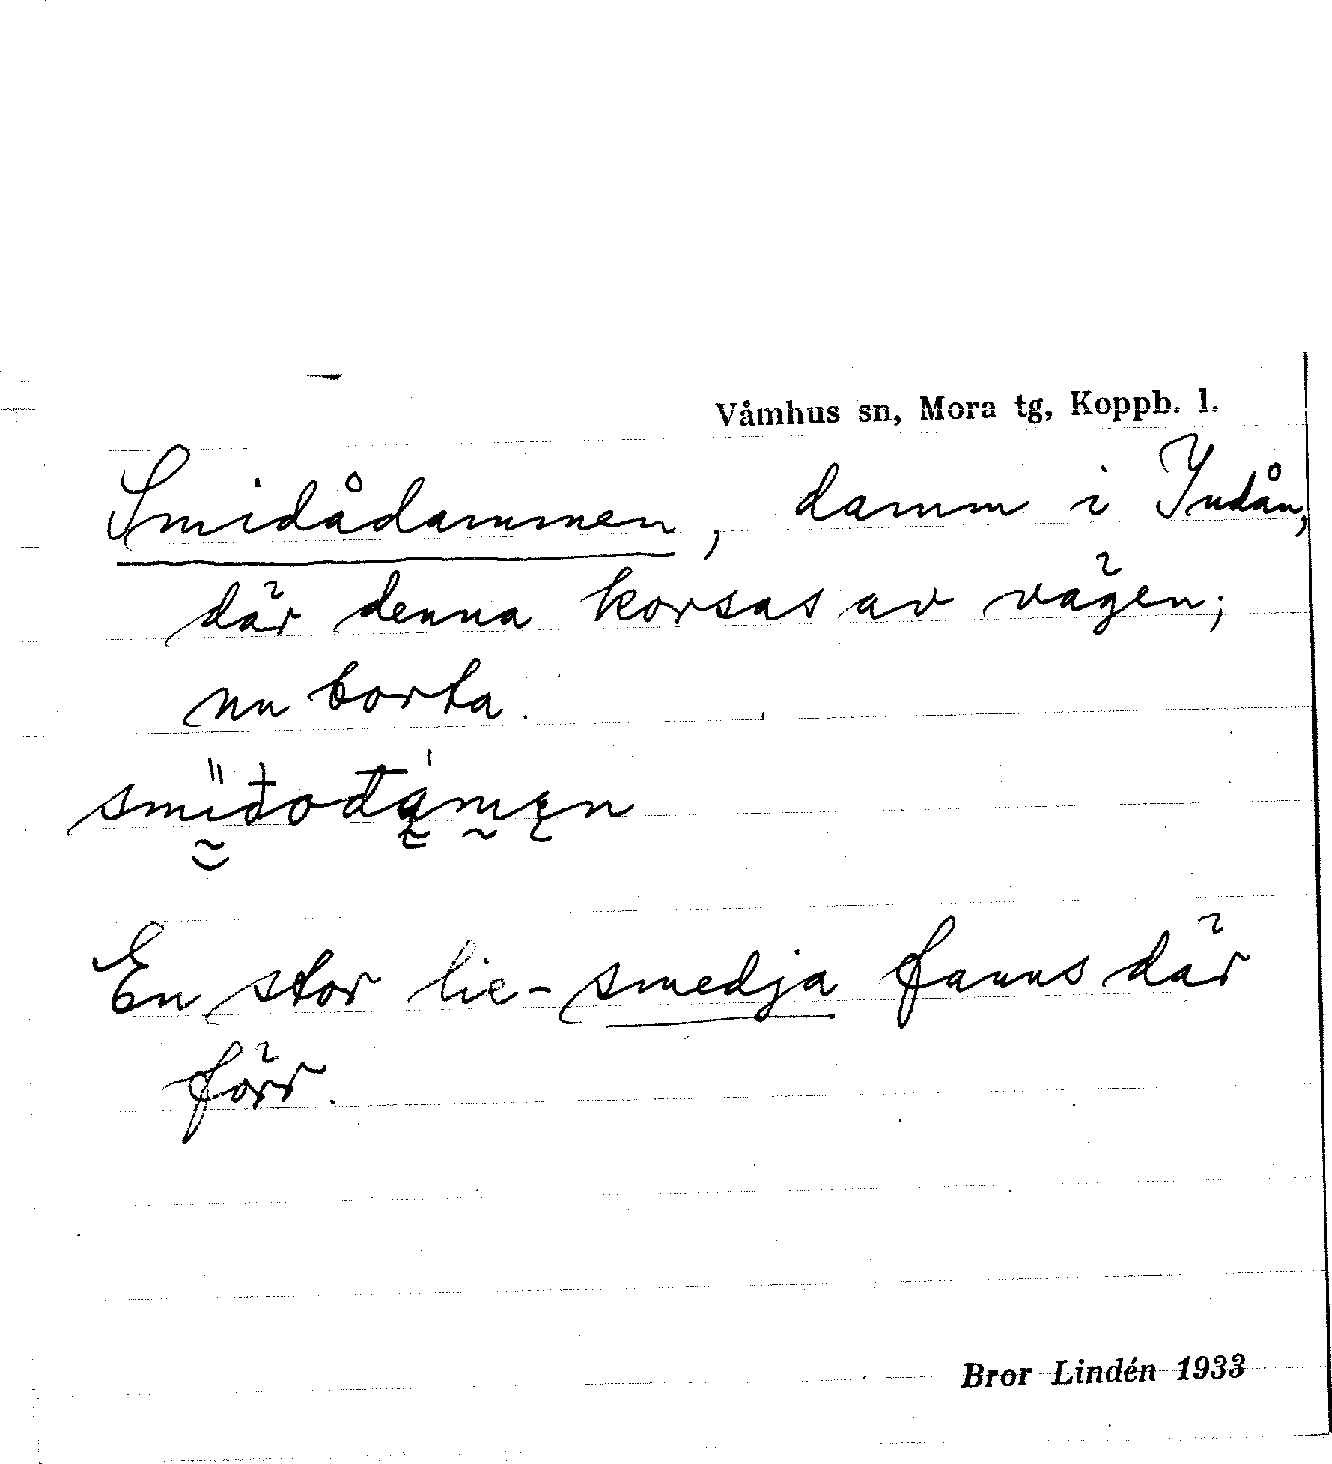 Våmhus sn, Mora tg, Koppb. l.
Smidådammen, damm i Indån,
där denna korsas av vägen;
nu borta.
smiđođa̧męn
En stor lie-smedja fanns där
förr.
Bror Lindén 1933